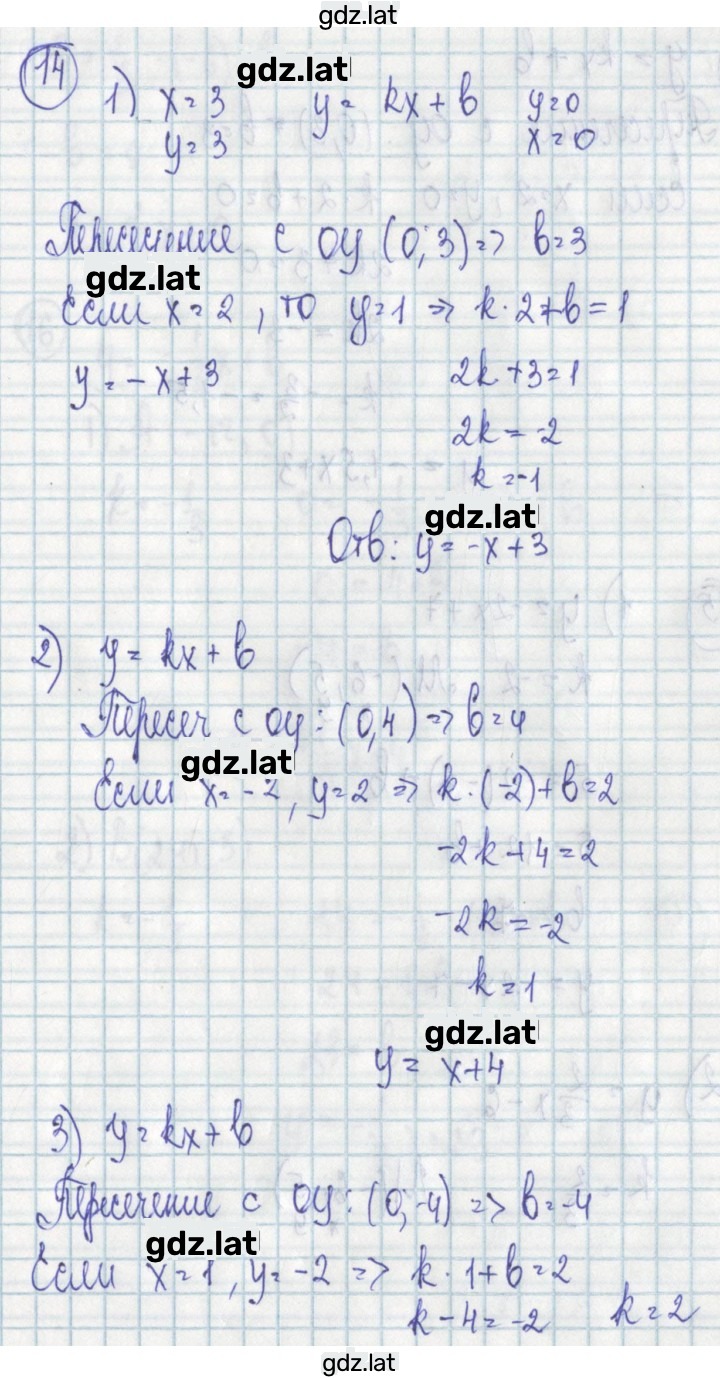 gdz.lat
14
gdz.lat
1) x=3 y= kx+b y=0
y=3 x=0
Пересечение с oy (0;3)=> b=3
gdz.lat
Если x=2, то y=1 => k·2+b=1
y=-x+3 2k+3=1
2k=-2
k=-1
gdz.lat
Отв: y=-x+3
2) y= kx+b
Пересеч с oy: (0,4)=> b=4
gdz.lat
Если x=-2, y=2 => k·(-2)+b=2
-2k+4=2
-2k=-2
k=1
gdz.lat
y= x+4
3) y=kx+b
Пересечение с oy: (0,-4) => b=-4
gdz.lat
Если x=1, y=-2 => k·1+b=2
k-4=-2 k=2
gdz.lat